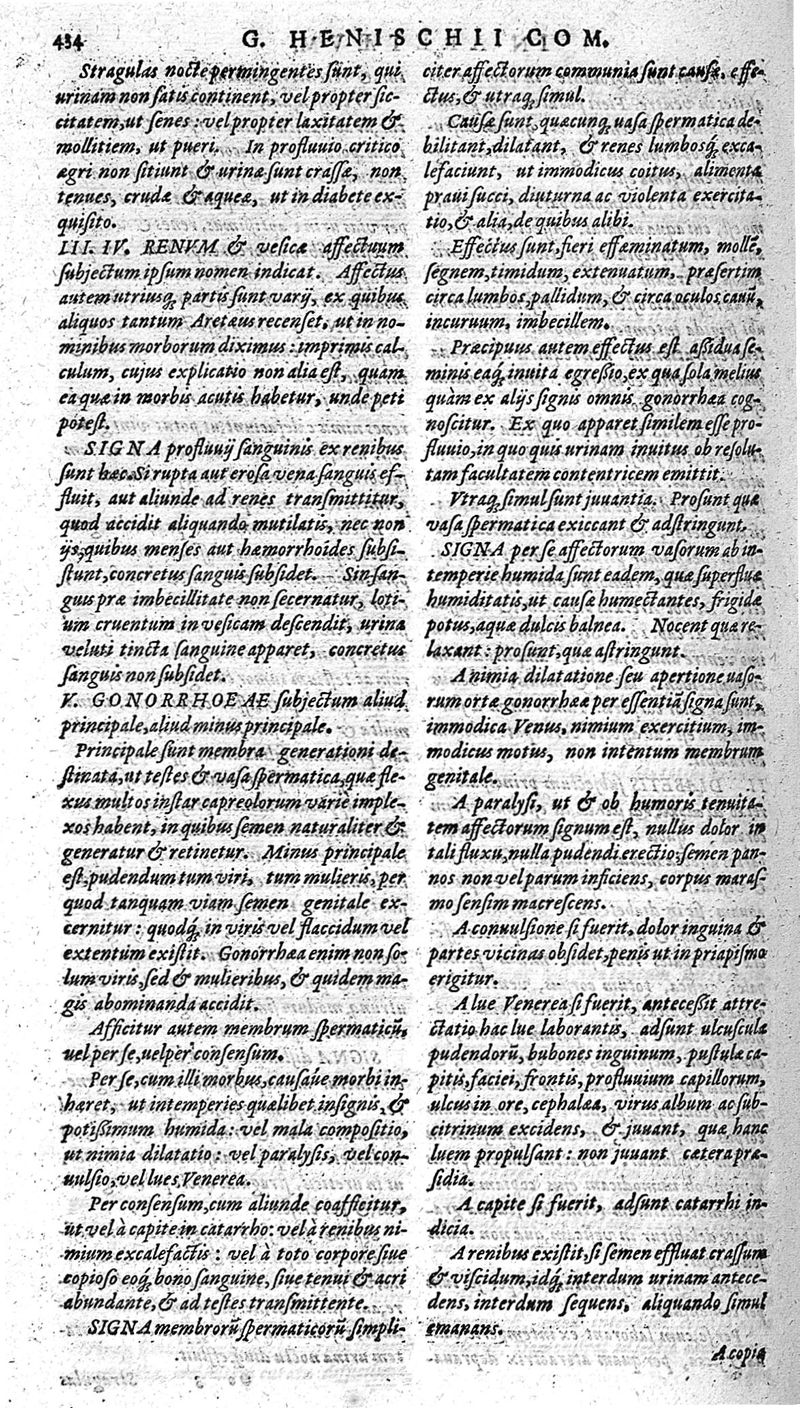 434 G. HENISCHII COM.
Stragulas nocte permingentes sunt, qui
urinam non satis continent, vel propter sic-
citatem, ut senes: vel propter laxitatem &
mollitiem, ut pueri. In profluvio critico
ægri non sitiunt & urinæ sunt crassæ, non
tenues, crudæ & aqueæ, ut in diabete ex-
quisito.
III. IV. RENVM & vesicæ affectuum
subjectum ipsum nomen indicat. Affectus
autem utriusq; partis sunt varij, ex quibus
aliquos tantum Aretæus recenset, ut in no-
minibus morborum diximus: imprimis cal-
culum, cujus explicatio non alia est, quam
ea quæ in morbis acutis habetur, unde peti
potest.
SIGNA profluvij sanguinis ex renibus
sunt hæc. Si rupta aut erosa vena sanguis ef-
fluit, aut aliunde ad renes transmittitur,
quod accidit aliquando mutilatis, nec non
ijs, quibus menses aut hæmorrhoides subsi-
stunt, concretus sanguis subsidet. Sin san-
guis præ imbecillitate non secernatur, loti-
um cruentum in vesicam descendit, urina
veluti tincta sanguine apparet, concretus
sanguis non subsidet.
V. GONORRHOEAE subjectum aliud
principale, aliud minus principale.
Principale sunt membra generationi de-
stinata, ut testes & vasa spermatica, quæ fle-
xus multos instar capreolorum variè imple-
xos habent, in quibus semen naturaliter &
generatur & retinetur. Minus principale
est, pudendum tum viri, tum mulieris, per
quod tanquam viam semen genitale ex-
cernitur: quodq́; in viris vel flaccidum vel
extentum existit. Gonorrhæa enim non so-
lum viris, sed & mulieribus, & quidem ma-
gis abominanda accidit.
Afficitur autem membrum spermaticũ,
uel per se, uel per consensum.
Per se, cum illi morbus, causáve morbi in-
hæret, ut intemperies quælibet insignis, &
potißimum humida: vel mala compositio,
ut nimia dilatatio: vel paralysis, vel con-
vulsio, vel lues Venerea.
Per consensum, cum aliunde coafficitur,
ut vel à capite in catarrho: vel à renibus ni-
mium excalefactis: vel à toto corpore siue
copioso eoq́; bono sanguine, siue tenui & acri
abundante, & ad testes transmittente.
SIGNA membrorũ spermaticorũ simpli-
citer affectorum communia sunt causæ, effe-
ctus, & utraq; simul.
Causæ sunt, quæcunq; uasa spermatica de-
bilitant, dilatant, & renes lumbosq́; exca-
lefaciunt, ut immodicus coitus, alimenta
praui succi, diuturna ac violenta exercita-
tio, & alia, de quibus alibi.
Effectus sunt, fieri effæminatum, mollẽ,
segnem, timidum, extenuatum, præsertim
circa lumbos, pallidum, & circa oculos cauũ,
incuruum, imbecillem.
Præcipuus autem effectus est aßidua se-
minis eaq́; inuita egreßio, ex qua sola melius
quàm ex alijs signis omnis gonorrhæa cog-
noscitur. Ex quo apparet similem esse pro-
fluuio, in quo quis urinam inuitus ob resolu-
tam facultatem contentricem emittit.
Vtraq; simul sunt juuantia. Prosunt quæ
vasa spermatica exiccant & adstringunt.
SIGNA per se affectorum vasorum ab in-
temperie humida sunt eadem, quæ superfluæ
humiditatis, ut causæ humectantes, frigidæ
potus, aquæ dulcis balnea. Nocent quæ re-
laxant: prosunt, quæ astringunt.
A nimia dilatatione seu apertione uaso-
rum ortæ gonorrhææ per essentiã signa sunt,
immodica Venus, nimium exercitium, im-
modicus motus, non intentum membrum
genitale.
A paralysi, ut & ob humoris tenuita-
tem affectorum signum est, nullus dolor in
tali fluxu, nulla pudendi erectio: semen pan-
nos non vel parum inficiens, corpus maras-
mo sensim macrescens.
A convulsione si fuerit, dolor inguina &
partes vicinas obsidet, penis ut in priapismo
erigitur.
A lue Venerea si fuerit, anteceßit attre-
ctatio hac lue laborantis, adsunt ulcuscula
pudendorũ, bubones inguinum, pustulæ ca-
pitis, faciei, frontis, profluuium capillorum,
ulcus in ore, cephalæa, virus album ac sub-
citrinum excidens, & juuant, quæ hanc
luem propulsant: non juuant cætera præ-
sidia.
A capite si fuerit, adsunt catarrhi in-
dicia.
A renibus existit, si semen effluat crassum
& viscidum, idq́; interdum urinam antece-
dens, interdum sequens, aliquando simul
emanans.
A copia